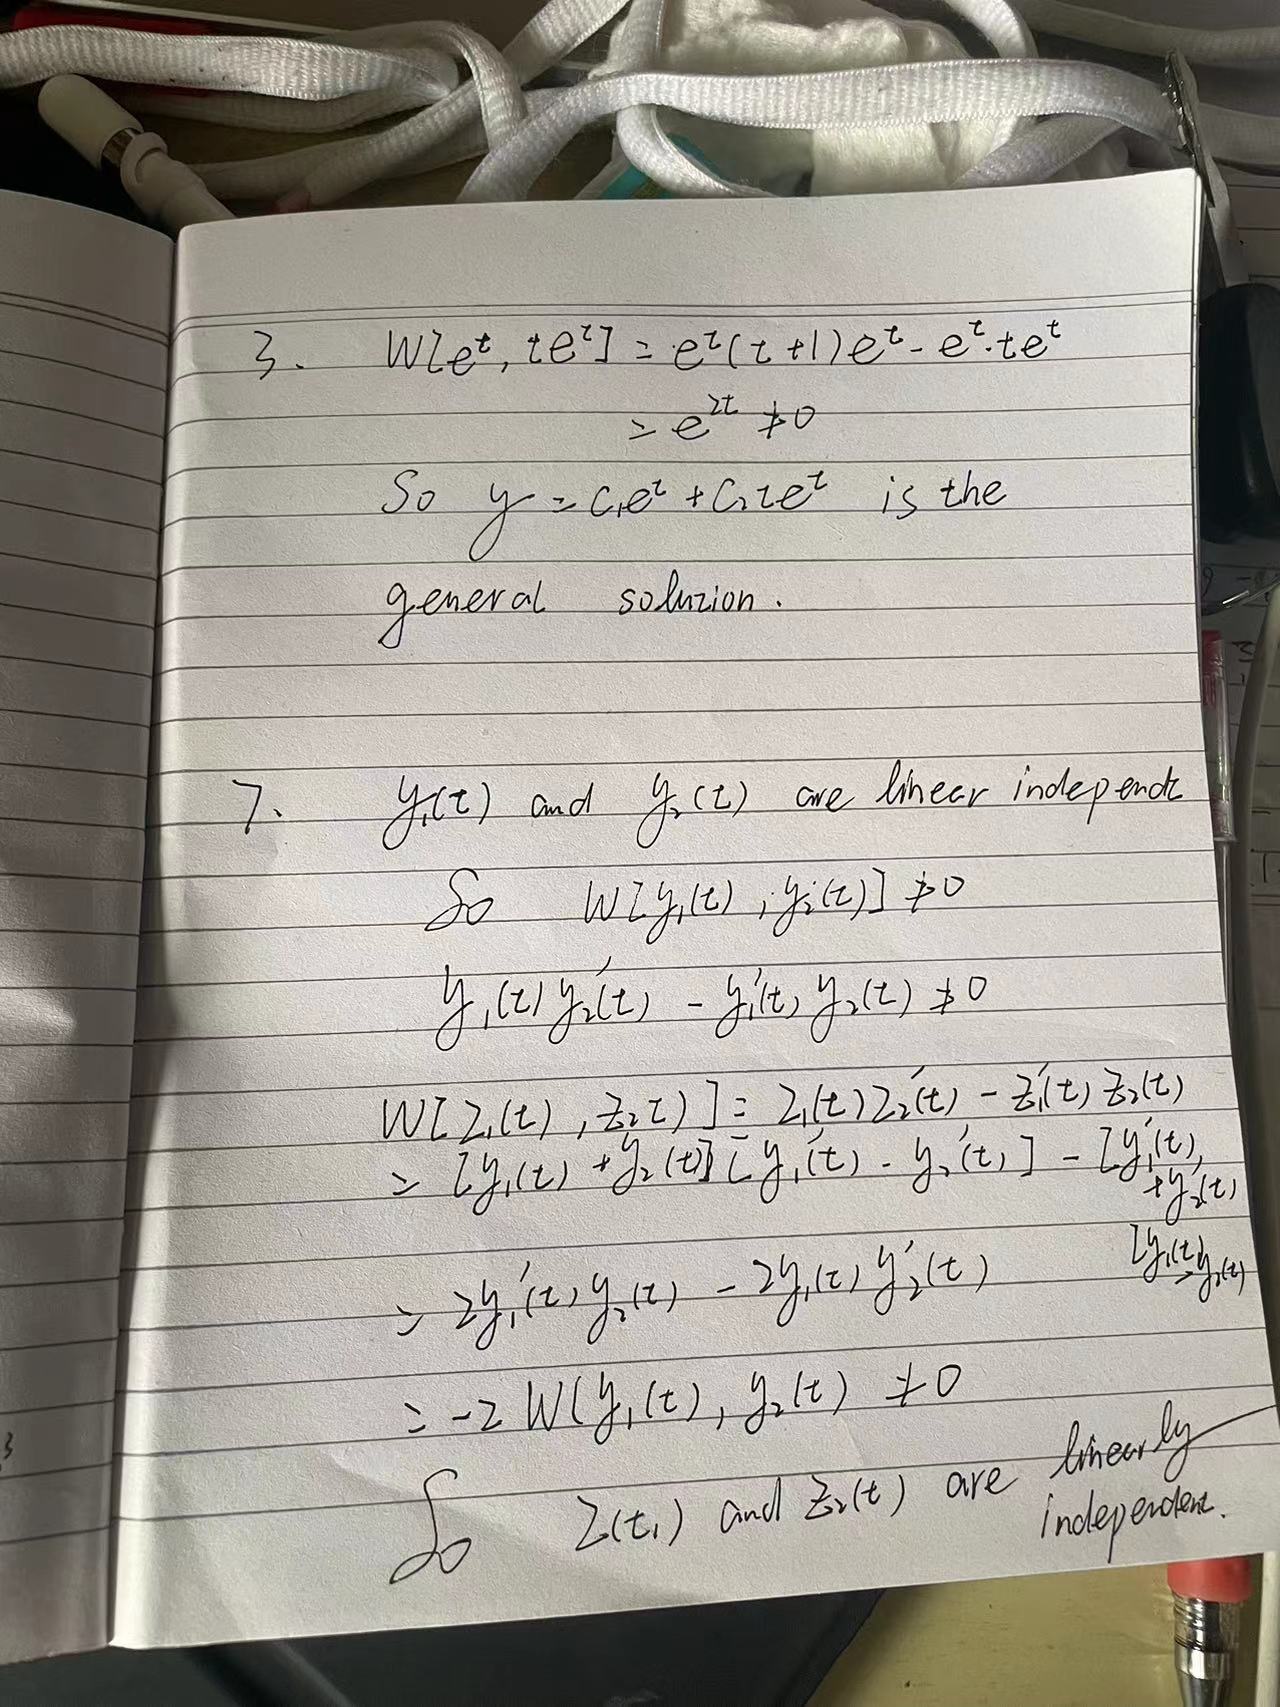 3. W[eᵗ, teᵗ] = eᵗ(t+1)eᵗ - eᵗ·teᵗ
= e²ᵗ ≠0
So y = C₁eᵗ + C₂teᵗ is the
general solution.
7. y₁(t) and y₂(t) are linear independt
So W[y₁(t), y₂(t)] ≠0
y₁(t)y₂'(t) - y₁'(t)y₂(t) ≠0
W[Z₁(t), Z₂t)] = Z₁(t)Z₂'(t) - Z₁'(t)Z₂(t)
= [y₁(t) + y₂(t)][y₁'(t) - y₂'(t)] - [y₁'(t)
+y₂'(t)
[y₁(t)
-y₂(t)
= 2y₁'(t)y₂(t) - 2y₁(t)y₂'(t)
= -2W(y₁(t), y₂(t) ≠0
So Z(t₁) and Z₂(t) are linearly
independent.